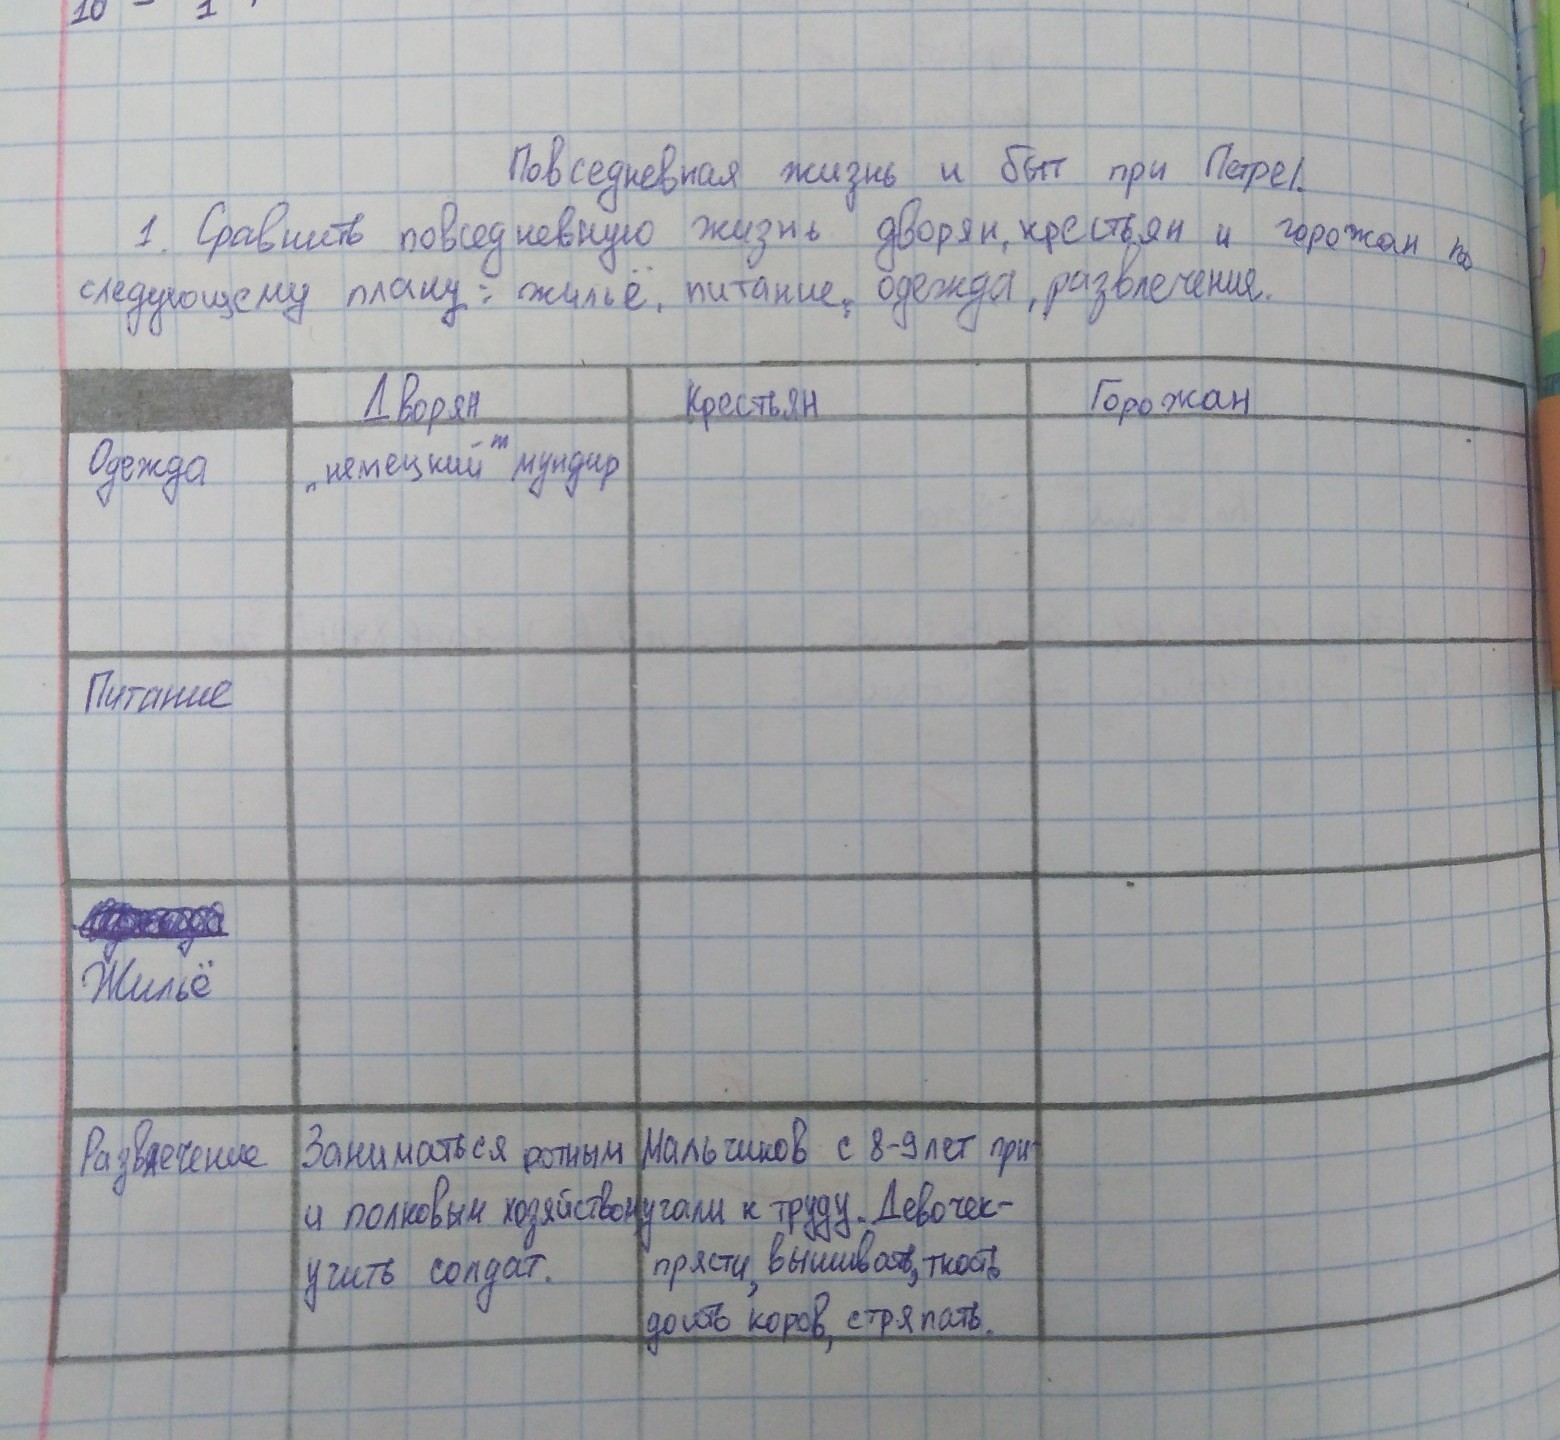 10 - 1
Повседневная жизнь и быт при Петре I.
1. Сравнить повседневную жизнь дворян, крестьян и горожан по
следующему плану: жильё, питание, одежда, развлечения.
Дворян Крестьян Горожан
Одежда „немецкий" мундир
Питание
Жильё
Развлечение Заниматься ротным Мальчиков с 8-9 лет при-
и полковым хозяйством учали к труду. Девочек-
учить солдат. прясти, вышивать, ткать
доить коров, стряпать.